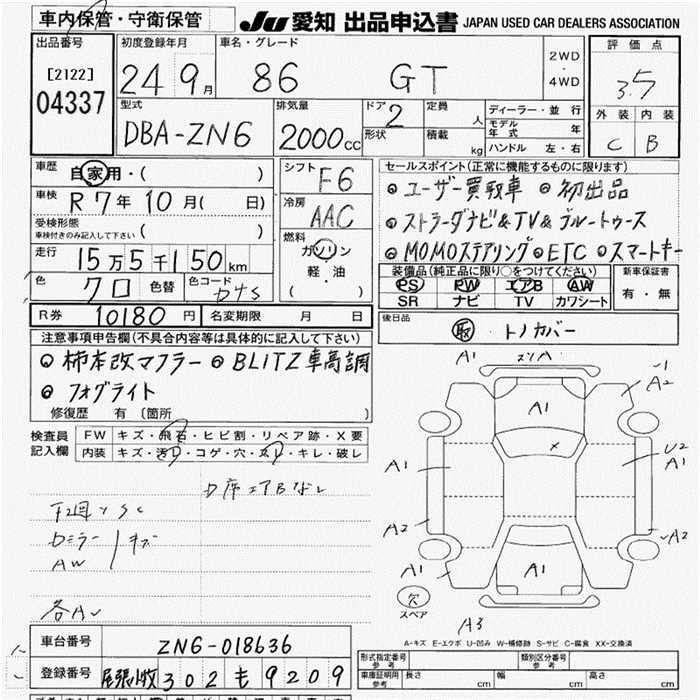 車内保管・守衛保管
JU 愛知 出品申込書 JAPAN USED CAR DEALERS ASSOCIATION
出品番号
[2122]
04337
初度登録年月
24 9月
車名・グレード
86 GT
2WD
・
4WD
評価点
3.5
外装 内装
C B
型式
DBA-ZN6
排気量
2000cc
ドア 2
形状
定員 人
積載 kg
ディーラー・並行
モデル年式 年
ハンドル 左・右
車歴
自家用・( )
車検
R7年10月( 日)
受検形態
車検付きのみ記入して下さい ( )
走行
15万5千150km
色
クロ
色替
色コード
D4S
シフト
F6
冷房
AAC
燃料
ガソリン
軽・油
( )
セールスポイント(正常に機能するものに限ります)
◎ユーザー買取車 ◎初出品
◎ストラーダナビ&TV&ブルートゥース
◎MOMOステアリング ◎ETC ◎スマートキー
装備品(純正品に限り○をつけてください)
PS PW エアB AW
SR ナビ TV カワシート
新車保証書
有・無
R券 10180円
名変期限 月 日
後日品
取 トノカバー
注意事項申告欄(不具合内容等は具体的に記入して下さい)
◎柿本改マフラー ◎BLITZ車高調
◎フォグライト
修復歴 有 〔箇所 〕
検査員
記入欄
FW キズ・飛石・ヒビ割・リペア跡・X要
内装 キズ・汚れ・コゲ・穴・スレ・キレ・破レ
D席エアBなし
下廻りSC
Dミラー
AW
キズ
各A
A1
A2
A1
A1
U2
A1
A2
A2
A1
A1
A1
A3
欠
スペア
A-キズ E-エクボ U-凹み W-補修跡 S-サビ C-腐食 XX-交換済
車台番号
ZN6-018636
登録番号
尾張小牧302も9209
形式指定番号
参考
類別区分番号
参考
車庫証明用
参考
長さ cm
幅 cm
高さ cm